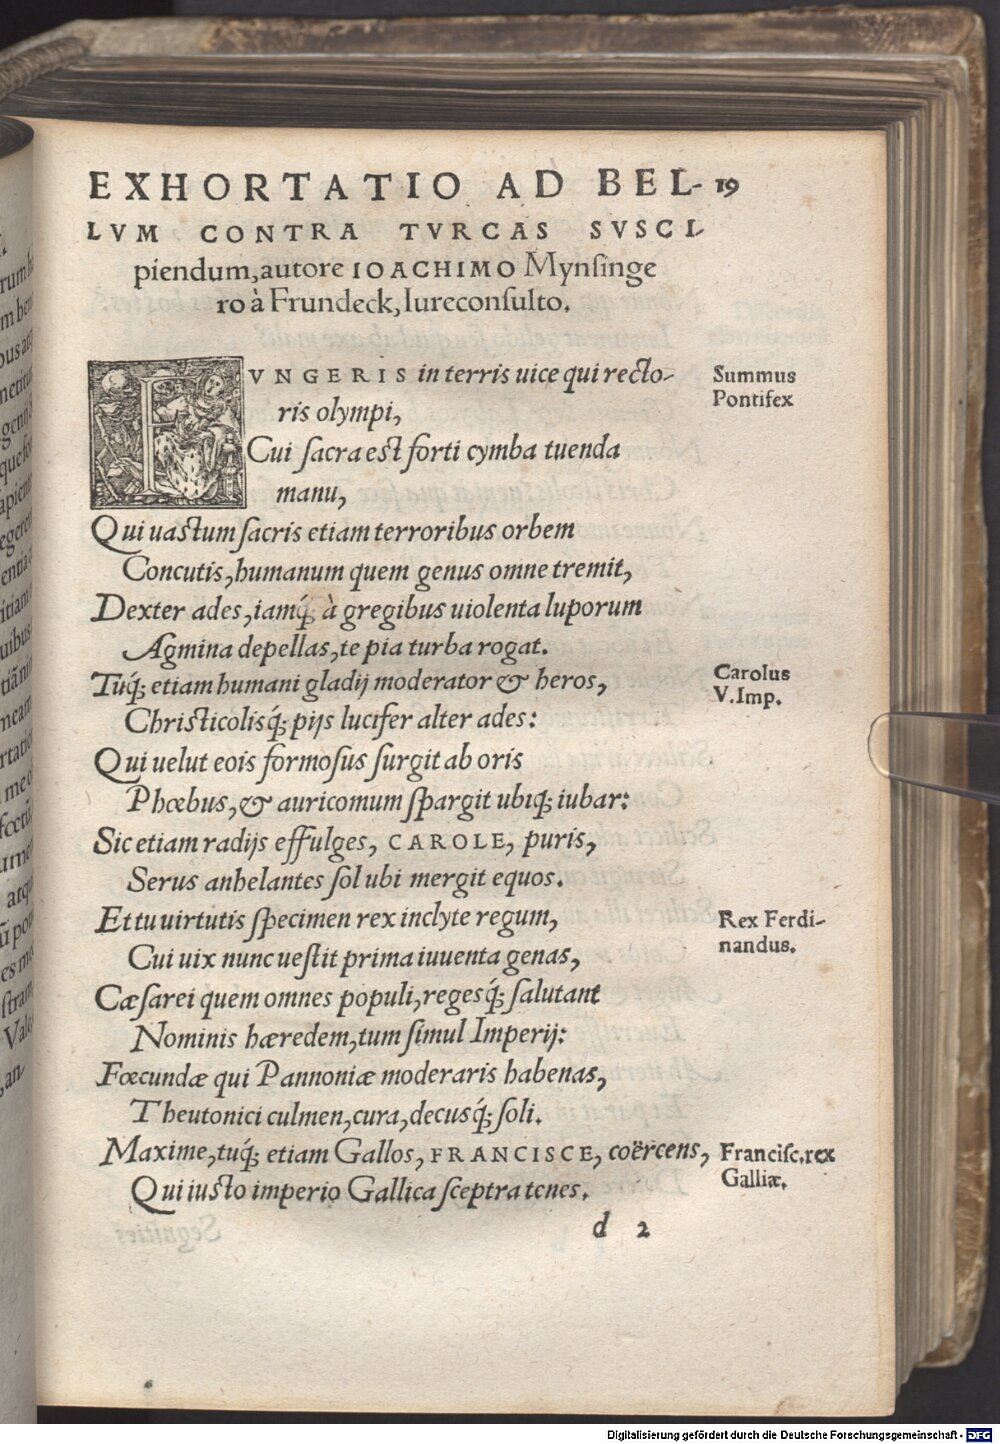 EXHORTATIO AD BEL- 19
LVM CONTRA TVRCAS SVSCI-
piendum, autore IOACHIMO Mynsinge
ro à Frundeck, Iureconsulto.
FVNGERIS in terris uice qui recto-
ris olympi,
Summus
Pontifex
Cui sacra est forti cymba tuenda
manu,
Qui uastum sacris etiam terroribus orbem
Concutis, humanum quem genus omne tremit,
Dexter ades, iamq́; à gregibus uiolenta luporum
Agmina depellas, te pia turba rogat.
Tuq́; etiam humani gladij moderator & heros,
Carolus
V. Imp.
Christicolisq́; pijs lucifer alter ades:
Qui uelut eois formosus surgit ab oris
Phœbus, & auricomum spargit ubiq; iubar:
Sic etiam radijs effulges, CAROLE, puris,
Serus anhelantes sol ubi mergit equos.
Et tu uirtutis specimen rex inclyte regum,
Rex Ferdi-
nandus.
Cui uix nunc uestit prima iuuenta genas,
Cæsarei quem omnes populi, regesq́; salutant
Nominis hæredem, tum simul Imperij:
Fœcundæ qui Pannoniæ moderaris habenas,
Theutonici culmen, cura, decusq́; soli.
Maxime, tuq́; etiam Gallos, FRANCISCE, coërcens,
Francisc. rex
Galliæ.
Qui iusto imperio Gallica sceptra tenes.
d 2
Digitalisierung gefördert durch die Deutsche Forschungsgemeinschaft - DFG